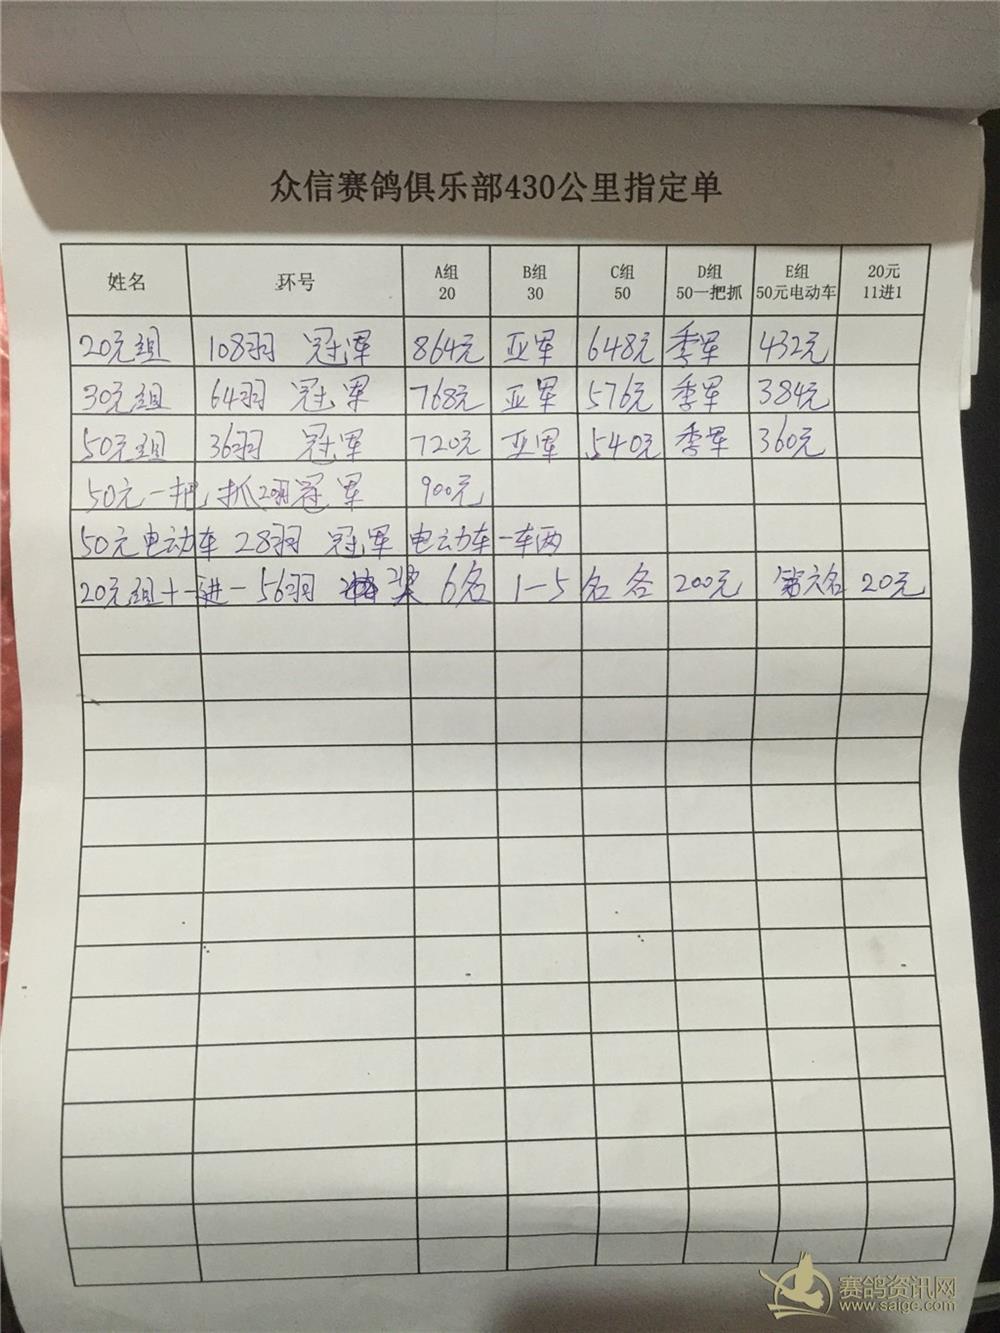 众信赛鸽俱乐部430公里指定单
姓名 环号 A组 20 B组 30 C组 50 D组 50一把抓 E组 50元电动车 20元 11进1
20元组 108羽 冠军 864元 亚军 648元 季军 432元
30元组 64羽 冠军 768元 亚军 576元 季军 384元
50元组 36羽 冠军 720元 亚军 540元 季军 360元
50元一把抓20羽冠军 900元
50元电动车 28羽 冠军 电动车一车两
20元组十一进一 56羽 奖 6名 1-5名 各 200元 第六名 20元
赛鸽资讯网
www.saige.com